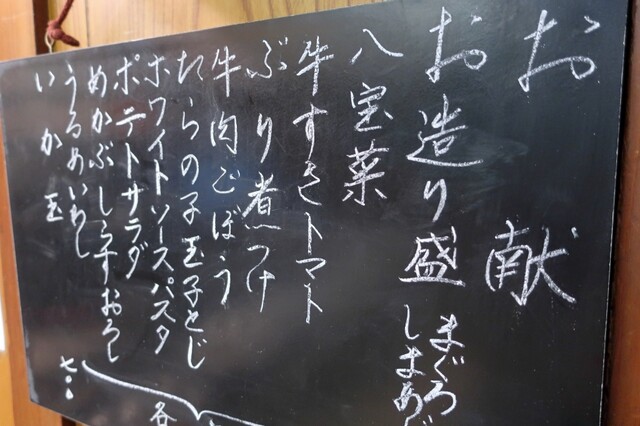 お献
お造り盛 まぐろ
しまあじ
八宝菜
牛すきトマト
ぶり煮つけ
牛肉ごぼう
たらの子玉子とじ
ホワイトソースパスタ
ポテトサラダ
めかぶしらすおろし
うるめいわし
いか玉
各
七〇〇